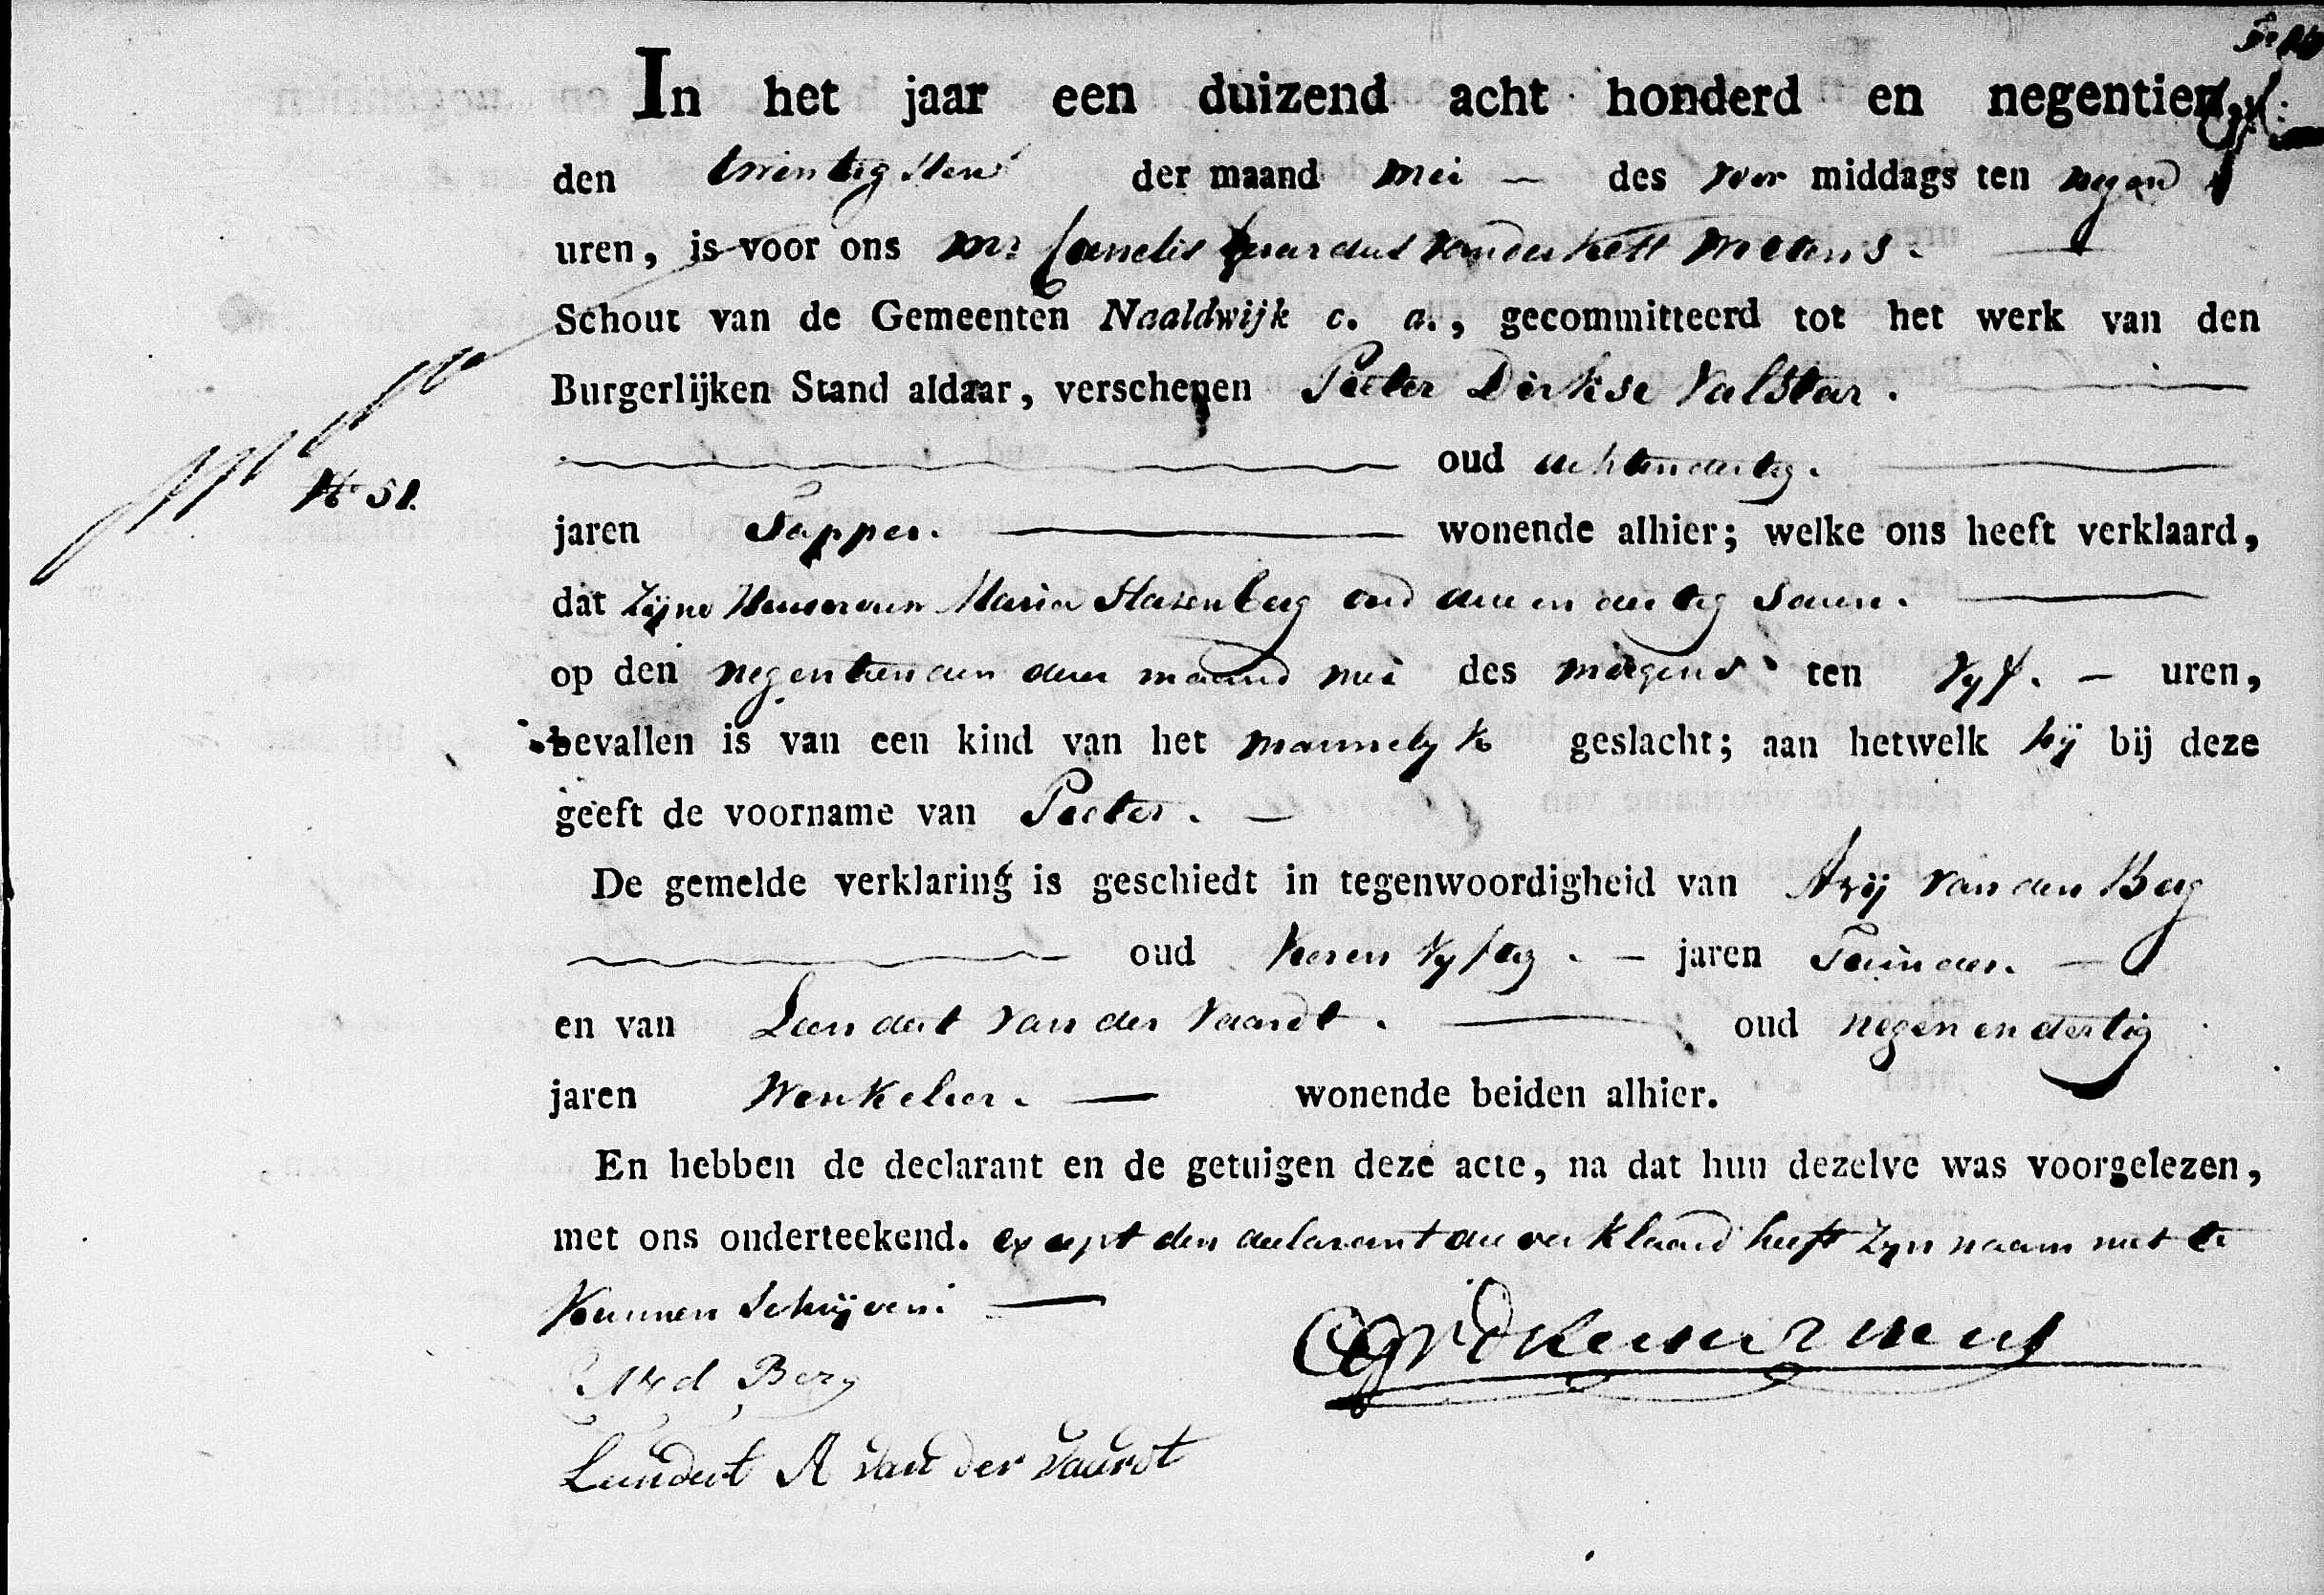 In het jaar een duizend acht honderd en negentien,
den twintigsten der maand Mei — des voor middags ten negen
uren, is voor ons Mr Cornelis Gerardus
Schout van de Gemeenten Naaldwijk c. a., gecommitteerd tot het werk van den
Burgerlijken Stand aldaar, verschenen Pieter Dirkse Valstar.
oud achtendertig.
No 51.
jaren Tapper. wonende alhier; welke ons heeft verklaard,
dat Zijne Huisvrouw Maria oud drie en dertig Jaren.
op den negentienden deser maand mei des morgens ten vyf. — uren,
bevallen is van een kind van het mannelyk geslacht; aan hetwelk hij bij deze
geeft de voorname van Pieter. —
De gemelde verklaring is geschiedt in tegenwoordigheid van Arij van den Berg
oud vyftig. — jaren Tuinder. —
en van Leendert van der Vaardt. oud negen en dertig
jaren Winkelier. — wonende beiden alhier.
En hebben de declarant en de getuigen deze acte, na dat hun dezelve was voorgelezen,
met ons onderteekend. except den declarant die verklaard heeft Zyn naam niet te
kunnen Schrijven. —
A v d Berg
Leendert A van der Vaardt